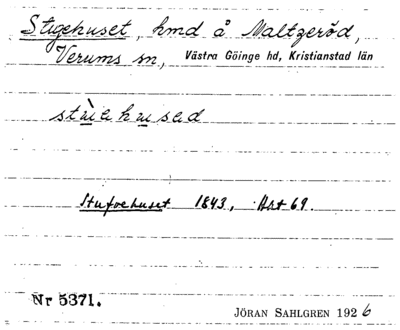 Stigehuset, hmd å Maltzeröd,
Verums sn, Västra Göinge hd, Kristianstad län
Stufvehuset 1843, Hat 69.
Nr 5371.
JÖRAN SAHLGREN 1926